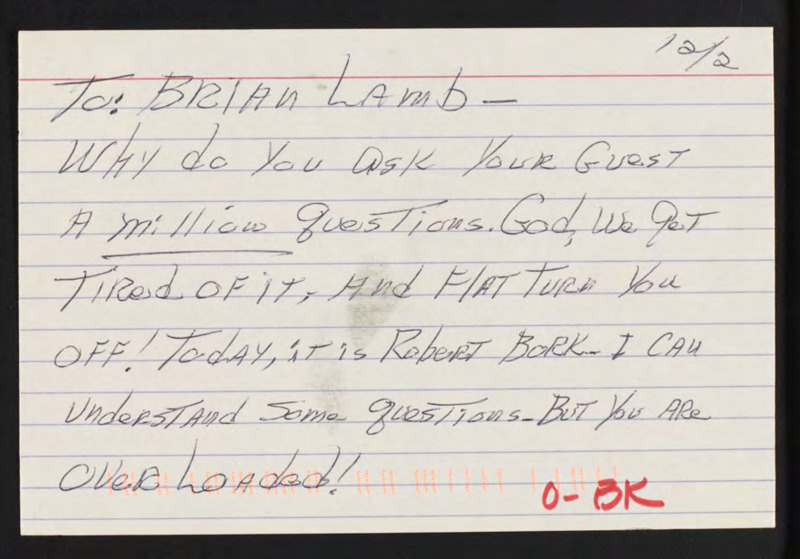 12/2
To: BRIAn LAmb —
WHY do You ask Your Guest
A million questions. God, We get
TIRed OF iT, And FlAT Turn You
OFF! TodAY, iT is RobeRT BoRK - I CAn
UndeRSTAnd Some questions - BuT You ARe
OVeR LoAded!
O- BK